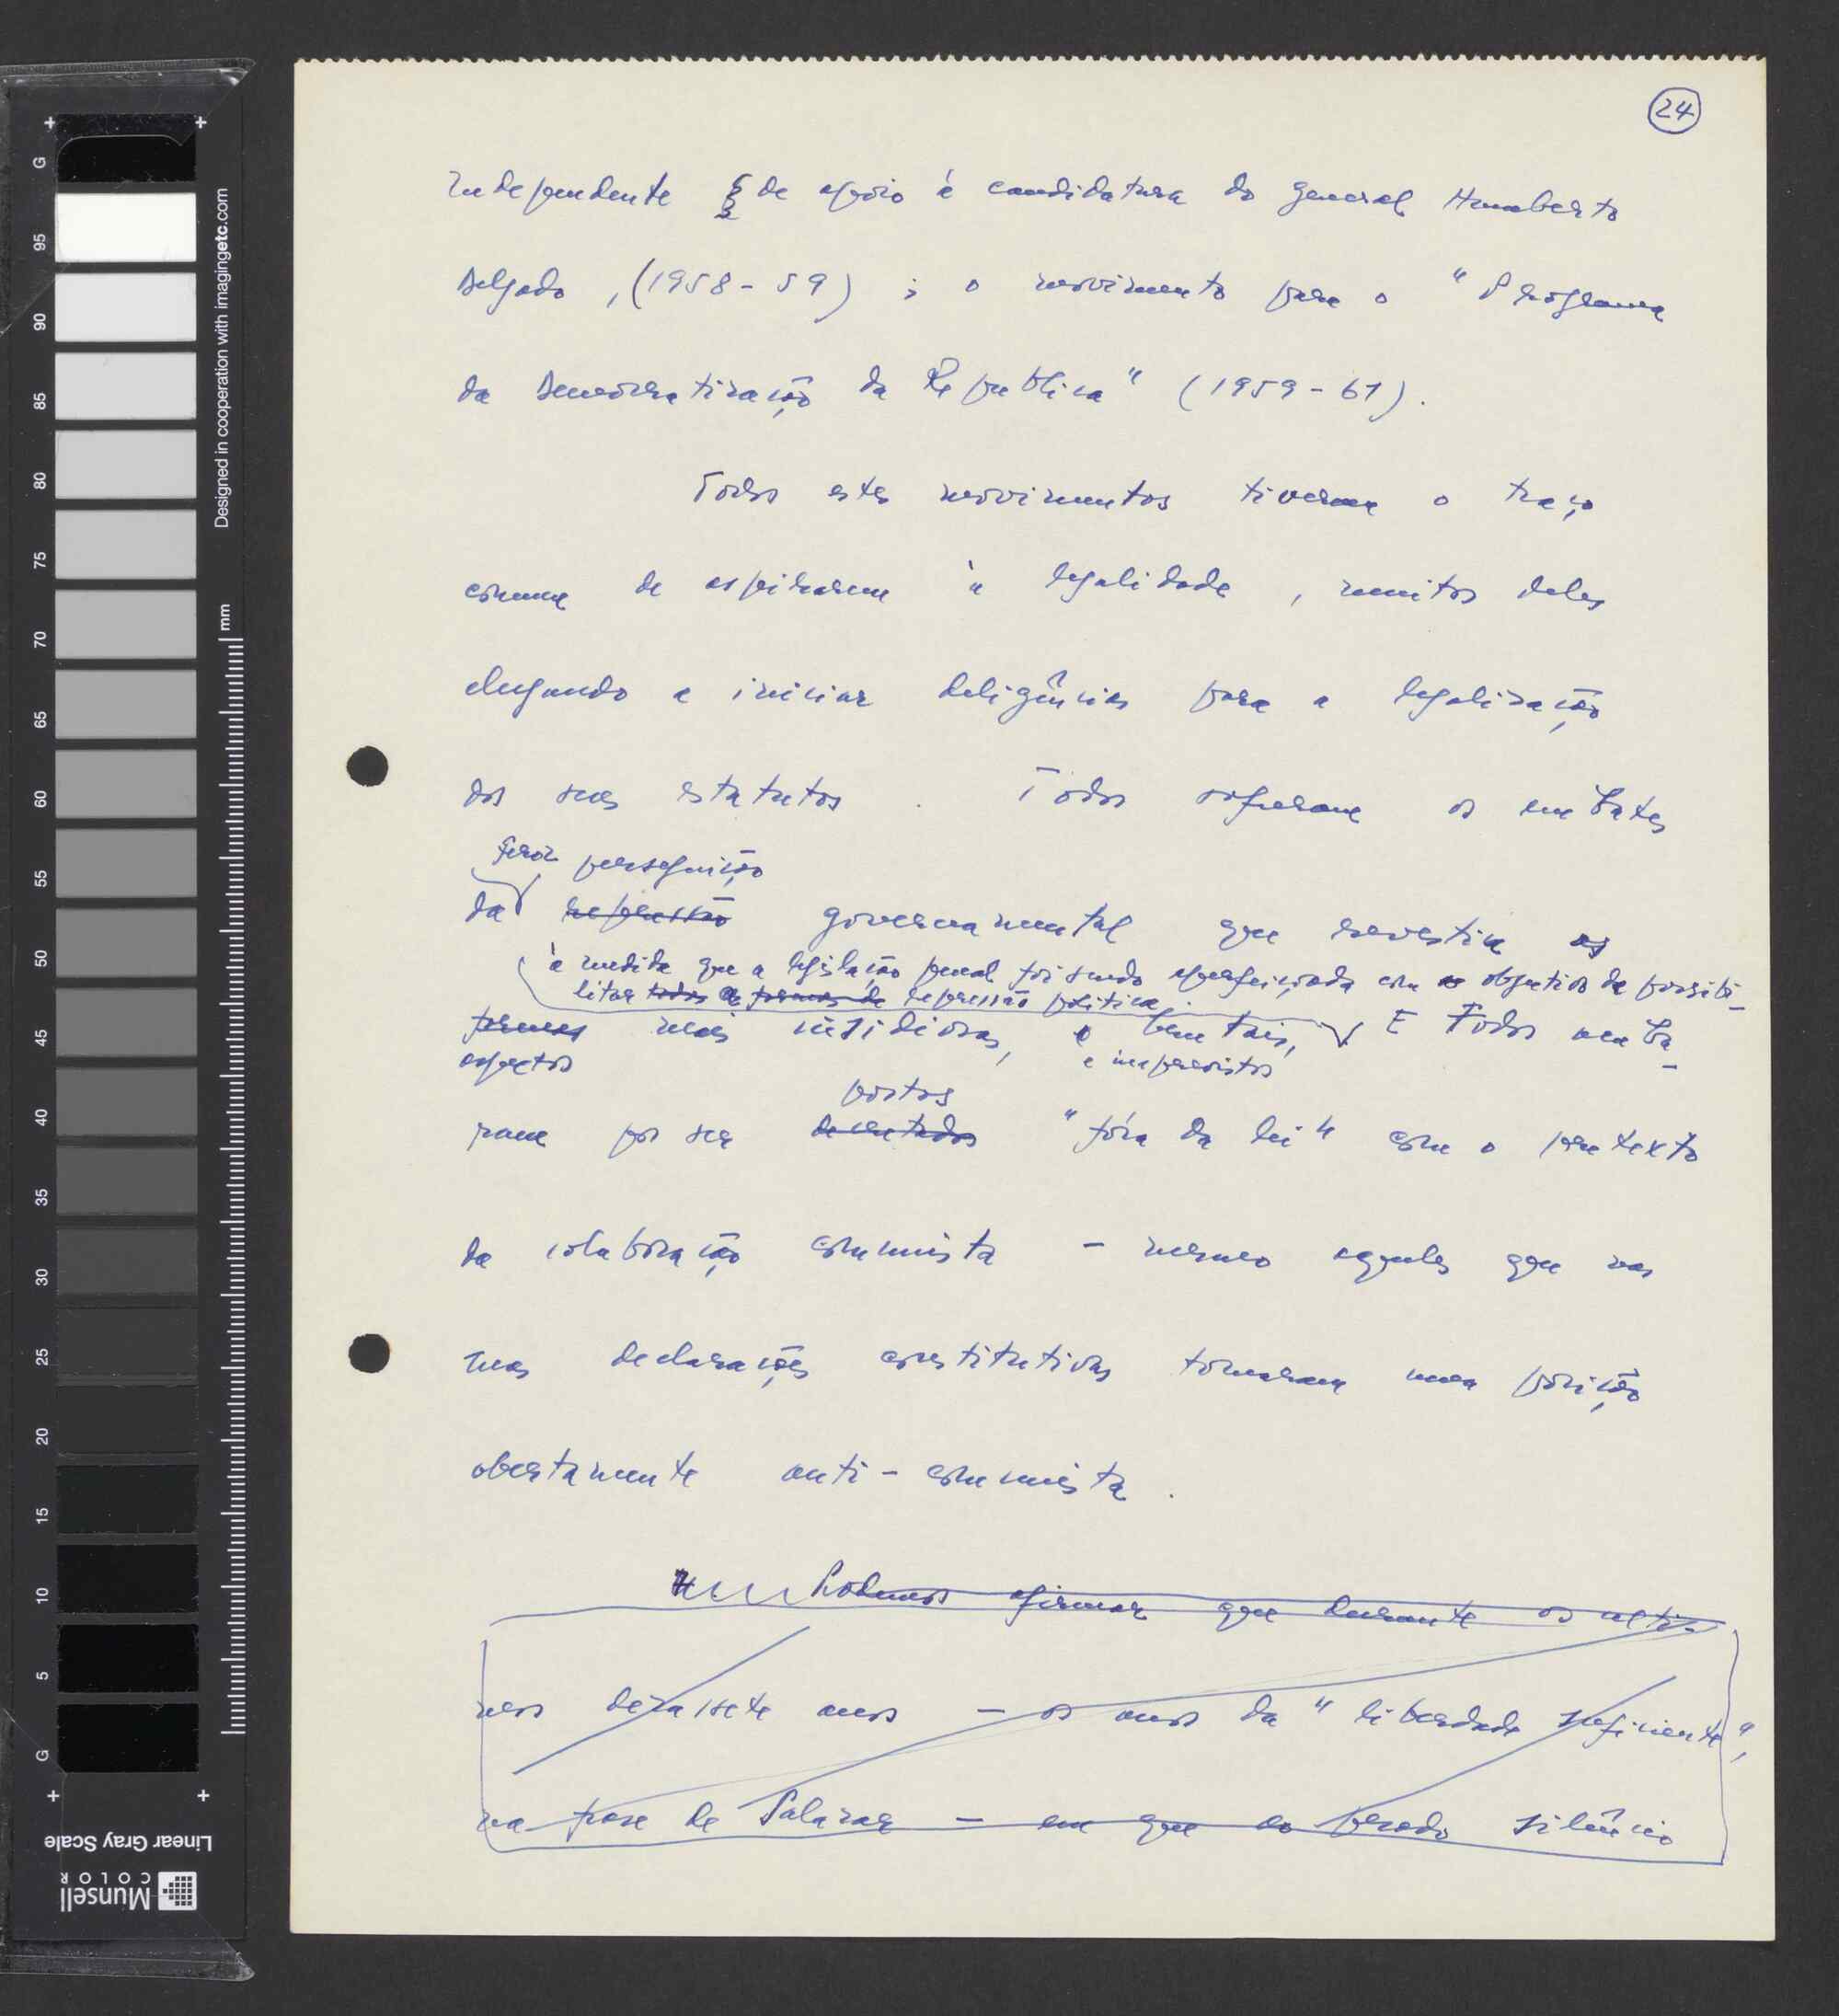 24
Independente de apoio à candidatura do general Humberto
Delgado, (1958-59) ; o movimento para o "Programa
da Democratização da Republica" (1959-61).
Todos estes movimentos tiveram o traço
comum de aspirarem à legalidade, muitos deles
chegando a iniciar deligências para a legalização
dos seus estatutos. Todos sofreram os embates
feroz perseguição
da repressão governamental que revestia as
à medida que a legislação penal foi sendo aperfeiçoada com o objetivo de possibi-
litar todas as formas de repressão politica.
formas mais insidiosas, e brutais, E Todos acaba-
aspectos e imprevistos
postos
ram por ser decretados "fóra da lei" com o pretexto
da colaboração comunista - mesmo aqueles que nas
suas declarações constitutivas tomaram uma posição
abertamente anti-comunista.
Podemos afirmar que durante os ulti-
mos dezassete anos - os anos da "liberdade suficiente",
na frase de Salazar - em que ao pesado silêncio
G
95
90
85
80
75
70
65
60
55
50
45
40
35
30
25
20
15
10
5
G
Designed in cooperation with imagingetc.com
mm
Linear Gray Scale
Munsell
COLOR